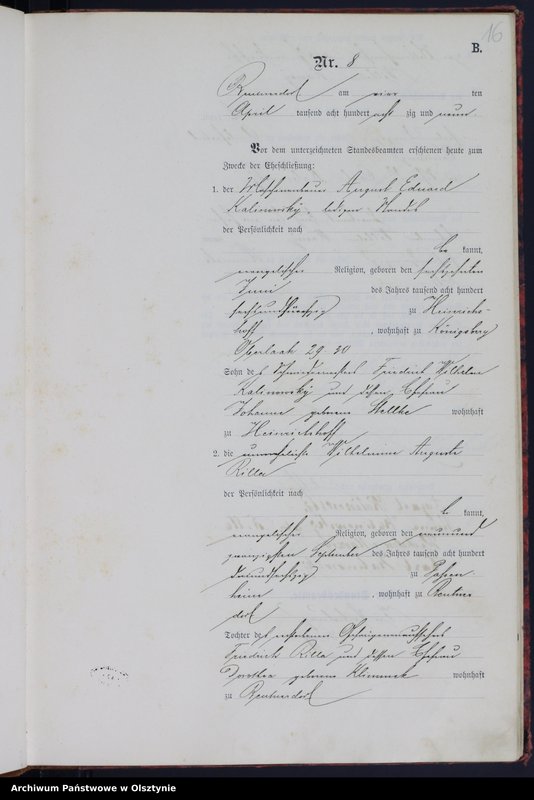 16
B.
Nr. 8
am vier ten
April tausend acht hundert acht zig und neun.
Vor dem unterzeichneten Standesbeamten erschienen heute zum
Zwecke der Eheschließung:
1. der August Eduard
Kalinowsky, ledigen Standes
der Persönlichkeit nach
be kannt,
evangelischer Religion, geboren den sechszehnten
Juni des Jahres tausend acht hundert
zu Heinrichs-
hoff, wohnhaft zu Königsberg
Oberlaak 29.30
Sohn des Schmiedemeisters Friedrich Wilhelm
Kalinowsky und dessen Ehefrau
Johanne geborene wohnhaft
zu Heinrichshoff
2. die unverehelichte Wilhelmine Auguste
Rilla
der Persönlichkeit nach
be kannt,
evangelischer Religion, geboren den neunund
zwanzigsten September des Jahres tausend acht hundert
dreiundsechszig zu
heim, wohnhaft zu
dorf
Tochter des
Friedrich Rilla und dessen Ehefrau
Dorothea geborene Klimmek wohnhaft
zu
Archiwum Państwowe w Olsztynie